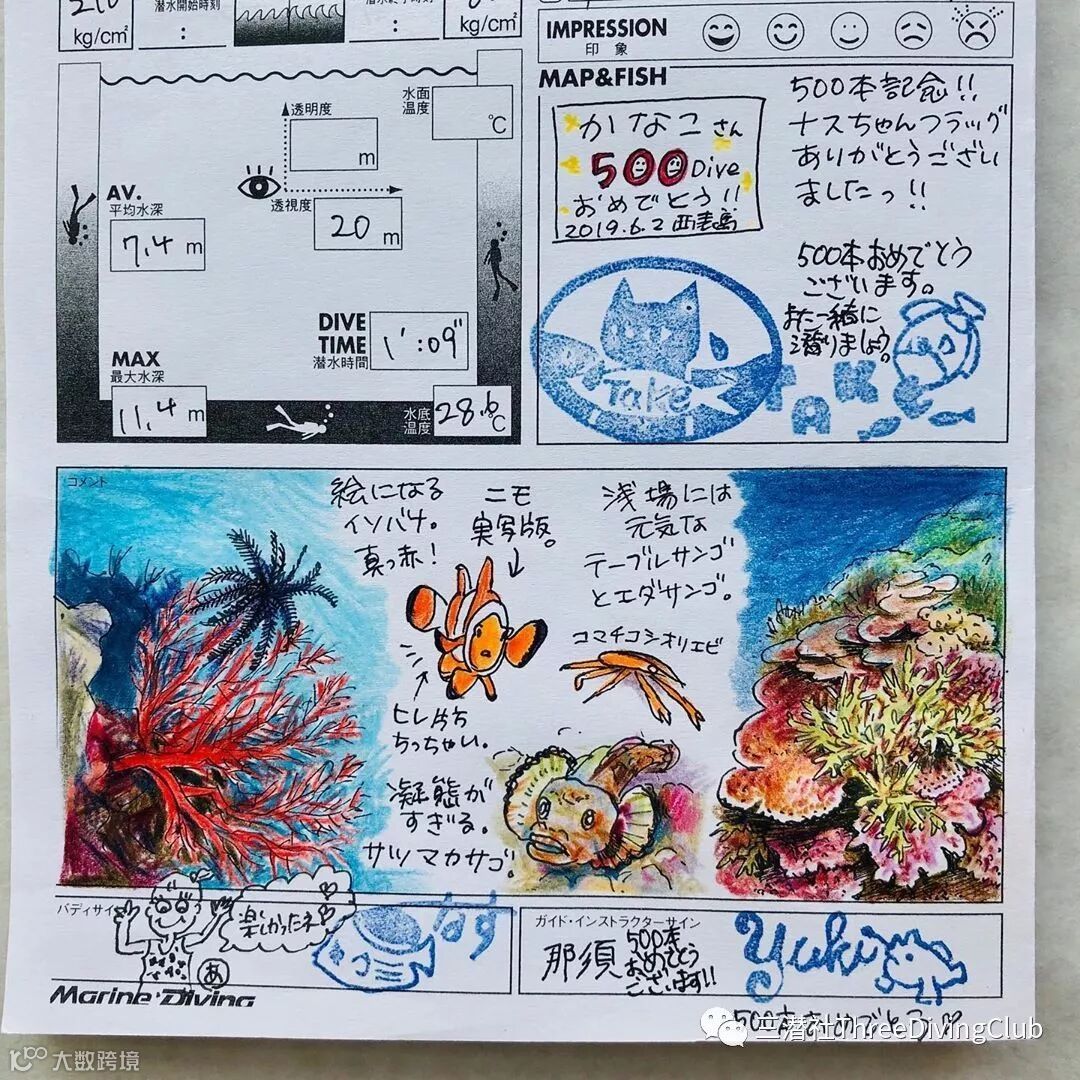 210
kg/cm²
潜水開始時刻
:
:
kg/cm²
IMPRESSION
印象
透明度
m
水面
温度
℃
AV.
平均水深
7.4 m
透視度
20 m
DIVE
TIME
潜水時間
1':09"
MAX
最大水深
11.4 m
水底
温度
28.6 ℃
MAP&FISH
かなこさん
500 Dive
おめでとう!!
2019.6.2 西表島
500本記念!!
ナスちゃんフラッグ
ありがとうござい
ましたっ!!
500本おめでとう
ございます。
また一緒に
潜りましょう。
Take
TAK
コメント
絵になる
イソバナ。
真っ赤!
ニモ
実写版。
浅場には
元気な
テーブルサンゴ
とエダサンゴ。
コマチコシオリエビ
ヒレ片方
ちっちゃい。
凝態が
すぎる。
サツマカサゴ。
バディサイン
楽しかったネ
あ
なす
ガイド・インストラクターサイン
那須
500本
おめでとう
ございます!!
Yuki
Marine Diving
500本おめでとう!!
三潜社ThreeDivingClub
大数跨境